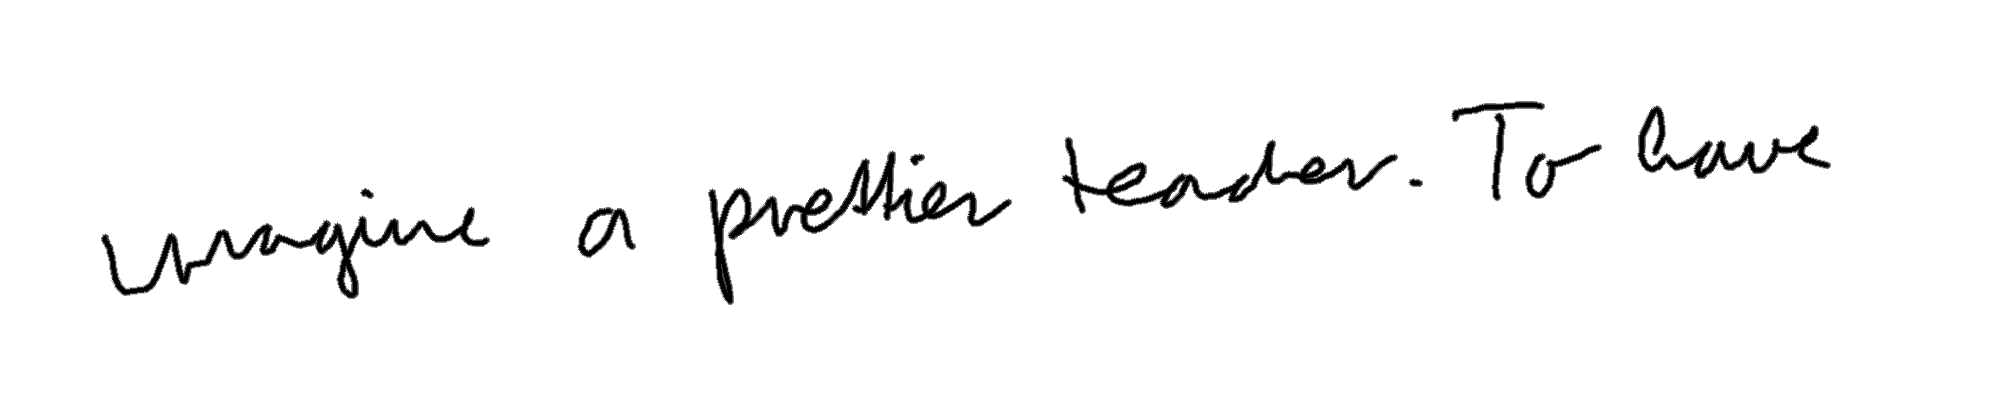 imagine a prettier teacher. To have